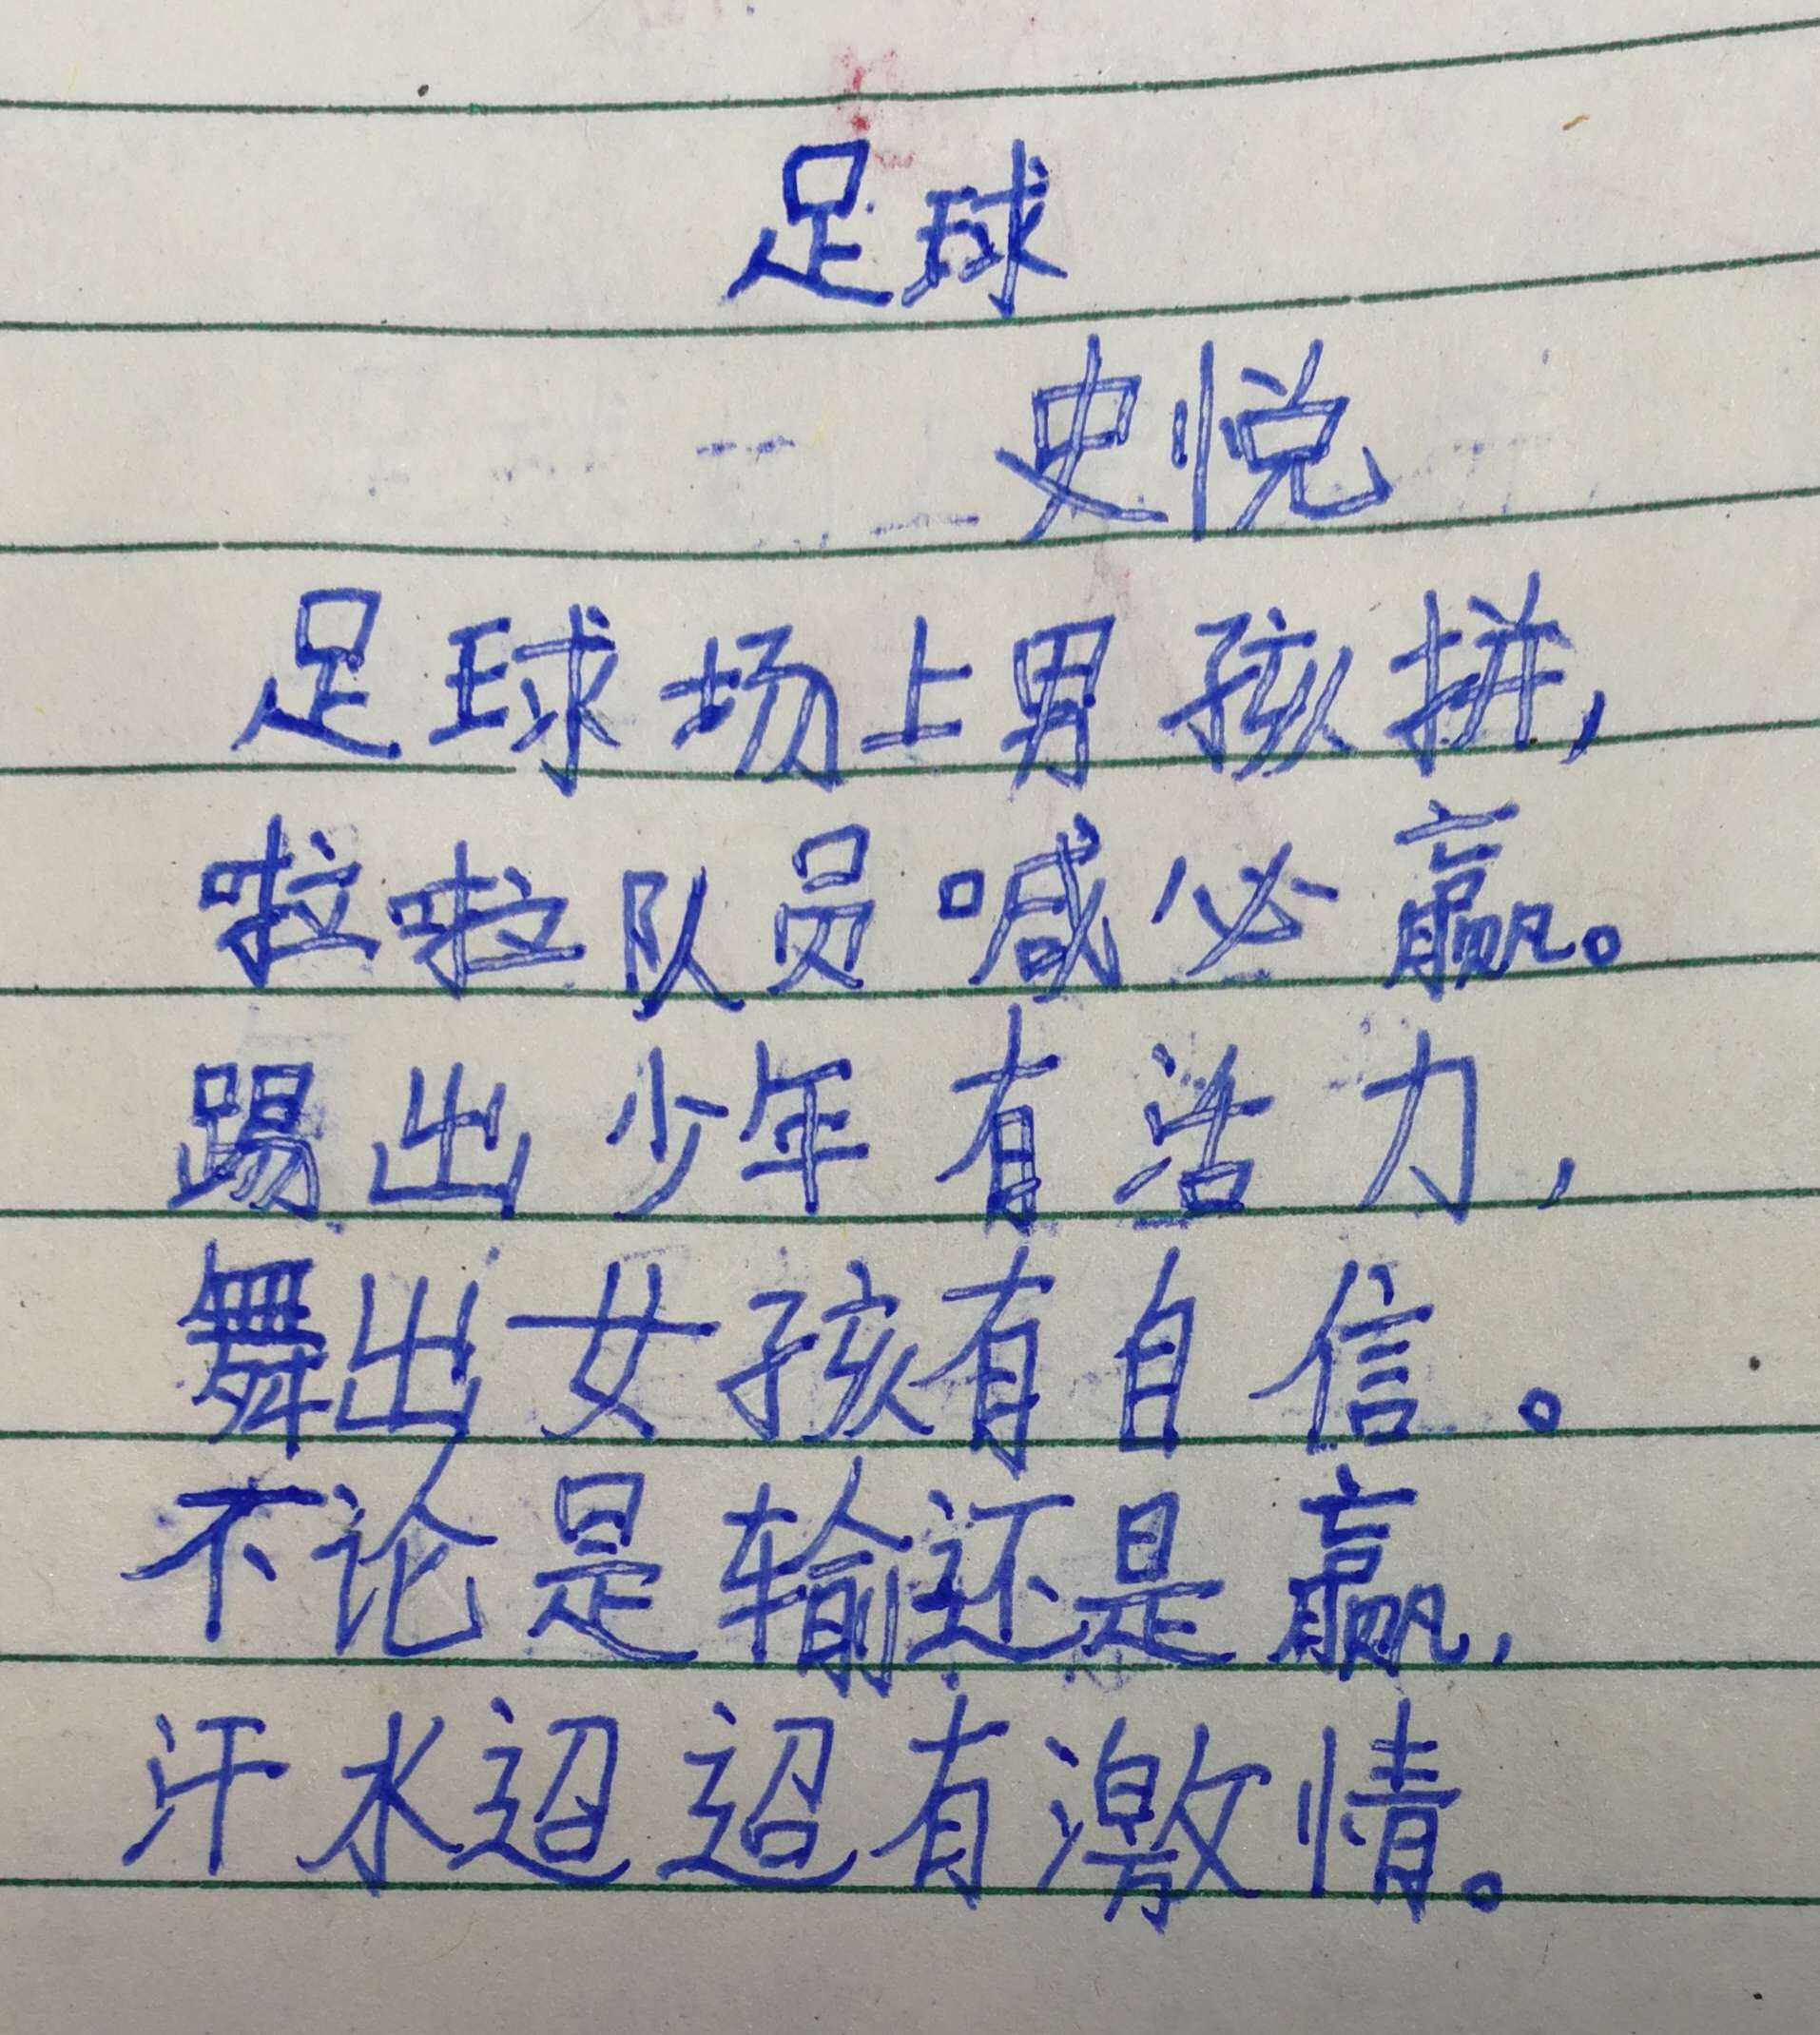 足球
史悦
足球场上男孩拼，
啦啦队员喊必赢。
踢出少年有活力，
舞出女孩有自信。
不论是输还是赢，
汗水迢迢有激情。